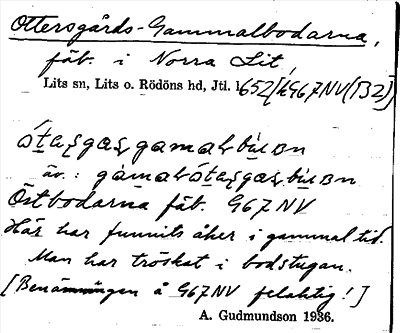 Ottersgårds-Gammalbodarna,
fäb. i Norra Lit,
Lits sn, Lits o. Rödöns hd, Jtl.
äv.:
Östbodarna fäb. 967 NV
Här har funnits åker i gammal tid.
Man har tröskat i bodstugan.
[Benämningen å 967 NV felaktig!]
A. Gudmundson 1936.